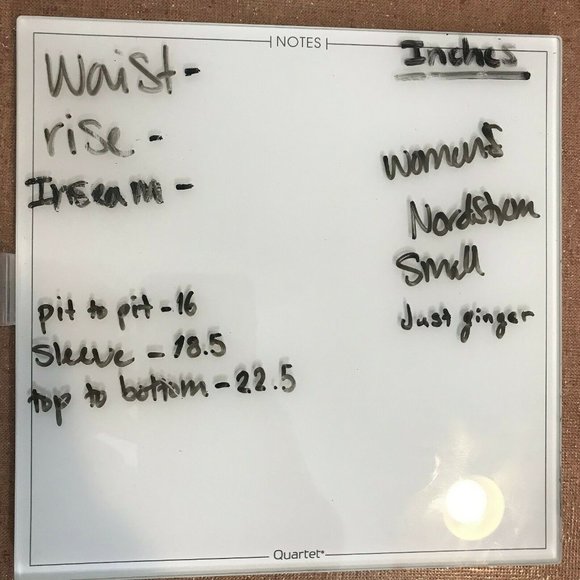 NOTES
Inches
Waist -
rise -
Inseam -
Womens
Nordstrom
Small
Just ginger
pit to pit - 16
Sleeve - 18.5
top to bottom - 22.5
Quartet